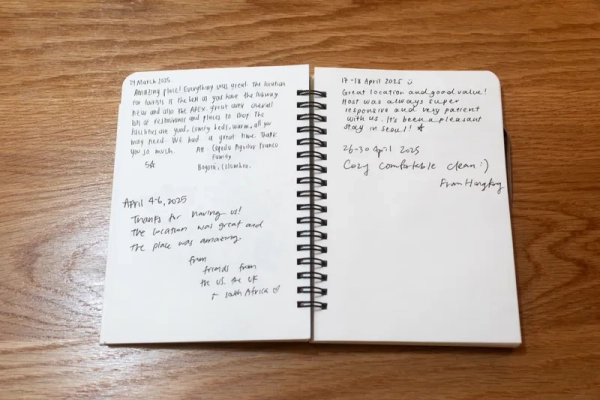 29 March 2025
Amazing place! Everything was great. The location
for tourists is the best as you have the subway
near and also the AREX. great area overall
lots of restaurants and places to buy. The
facilities are good, comfy beds, warm, all you
may need. We had a great time. Thank
you so much. Att: Aguilar Franco
Family
5☆ Bogotá, Colombia.
April 4-6, 2025
Thanks for having us!
The location was great and
the place was amazing.
from
friends from
the US, the UK
+ South Africa ♡
17-18 April 2025 ☺
Great location and good value!
Host was always super
responsive and very patient
with us. It's been a pleasant
stay in seoul! ★
26-30 April 2025
Cozy comfortable clean :)
From HongKong